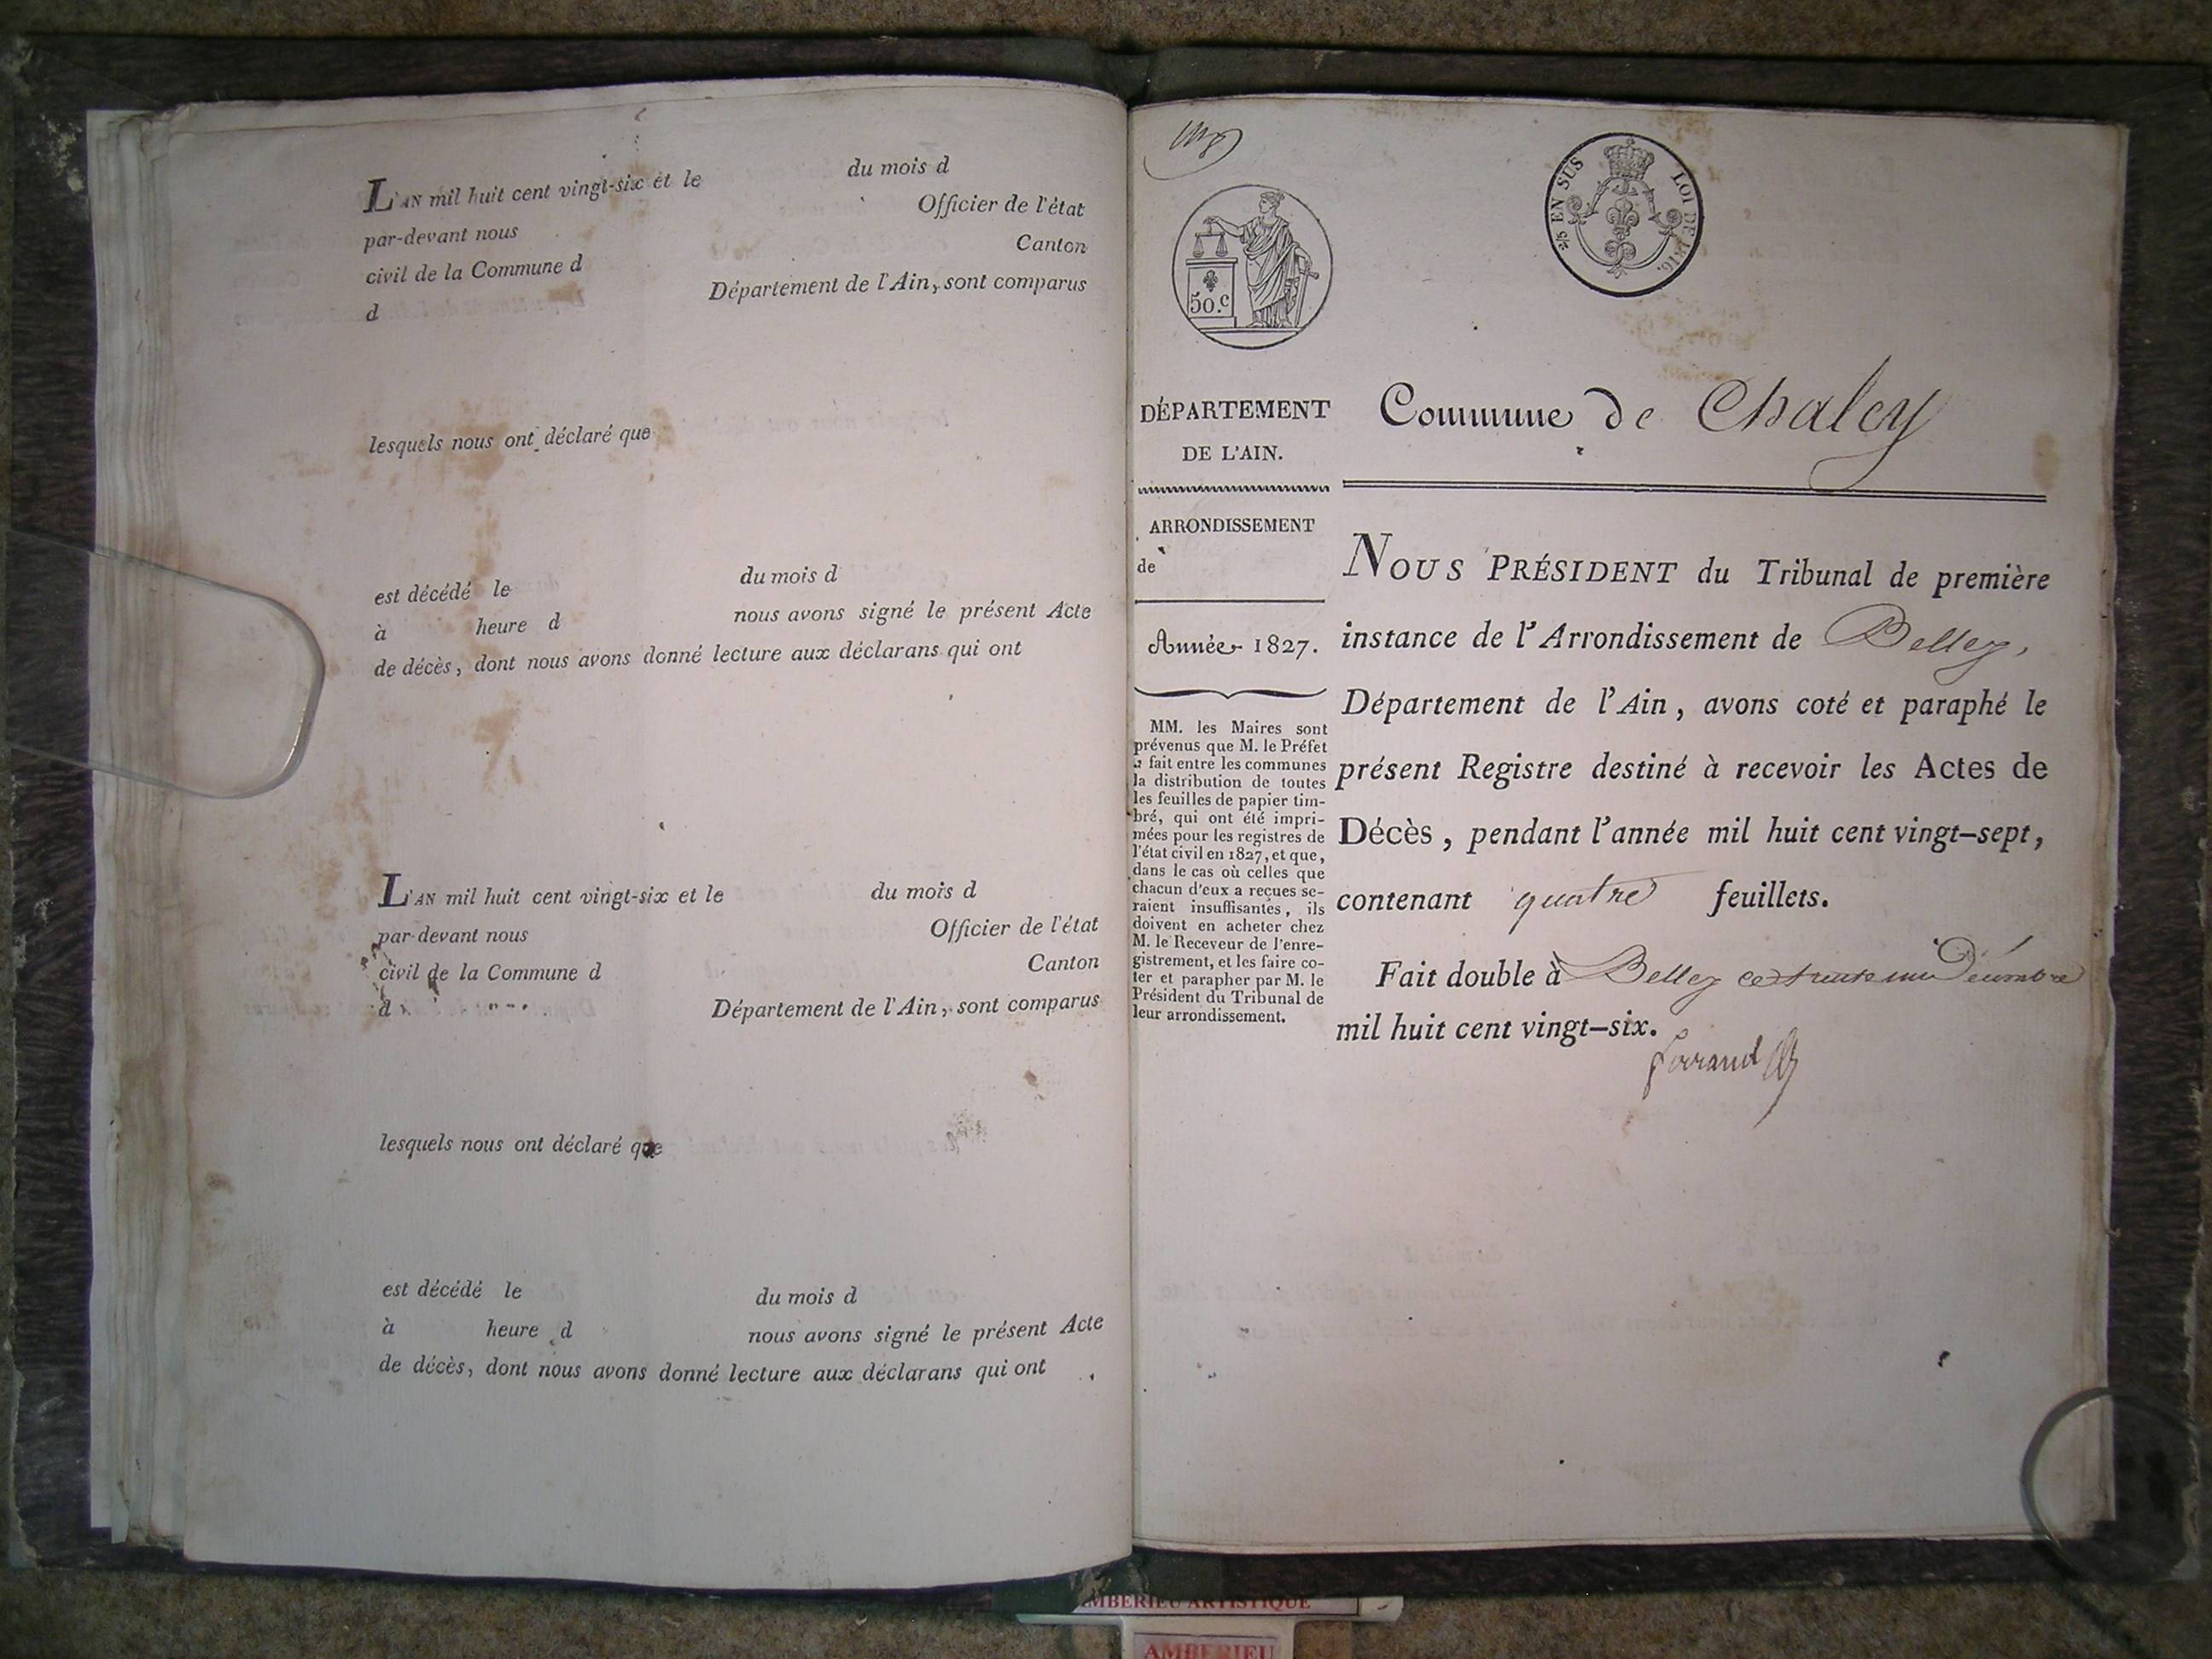 L'AN mil huit cent vingt-six et le du mois d
par-devant nous Officier de l'état
civil de la Commune d Canton
d Département de l'Ain, sont comparus
lesquels nous ont déclaré que
est décédé le du mois d
à heure d nous avons signé le présent Acte
de décès, dont nous avons donné lecture aux déclarans qui ont
L'AN mil huit cent vingt-six et le du mois d
par-devant nous Officier de l'état
civil de la Commune d Canton
d Département de l'Ain, sont comparus
lesquels nous ont déclaré que
est décédé le du mois d
à heure d nous avons signé le présent Acte
de décès, dont nous avons donné lecture aux déclarans qui ont
50.c
EN SUS LOI DE 1816.
DÉPARTEMENT
DE L'AIN.
ARRONDISSEMENT
de
Année 1827.
MM. les Maires sont
prévenus que M. le Préfet
a fait entre les communes
la distribution de toutes
les feuilles de papier tim-
bré, qui ont été impri-
mées pour les registres de
l'état civil en 1827, et que,
dans le cas où celles que
chacun d'eux a reçues se-
raient insuffisantes, ils
doivent en acheter chez
M. le Receveur de l'enre-
gistrement, et les faire co-
ter et parapher par M. le
Président du Tribunal de
leur arrondissement.
Commune de Chaley
NOUS PRÉSIDENT du Tribunal de première
instance de l'Arrondissement de Belley,
Département de l'Ain, avons coté et paraphé le
présent Registre destiné à recevoir les Actes de
Décès, pendant l'année mil huit cent vingt-sept,
contenant quatre feuillets.
Fait double à Belley ce trente un Décembre
mil huit cent vingt-six.
AMBERIEU ARTISTIQUE
AMBERIEU